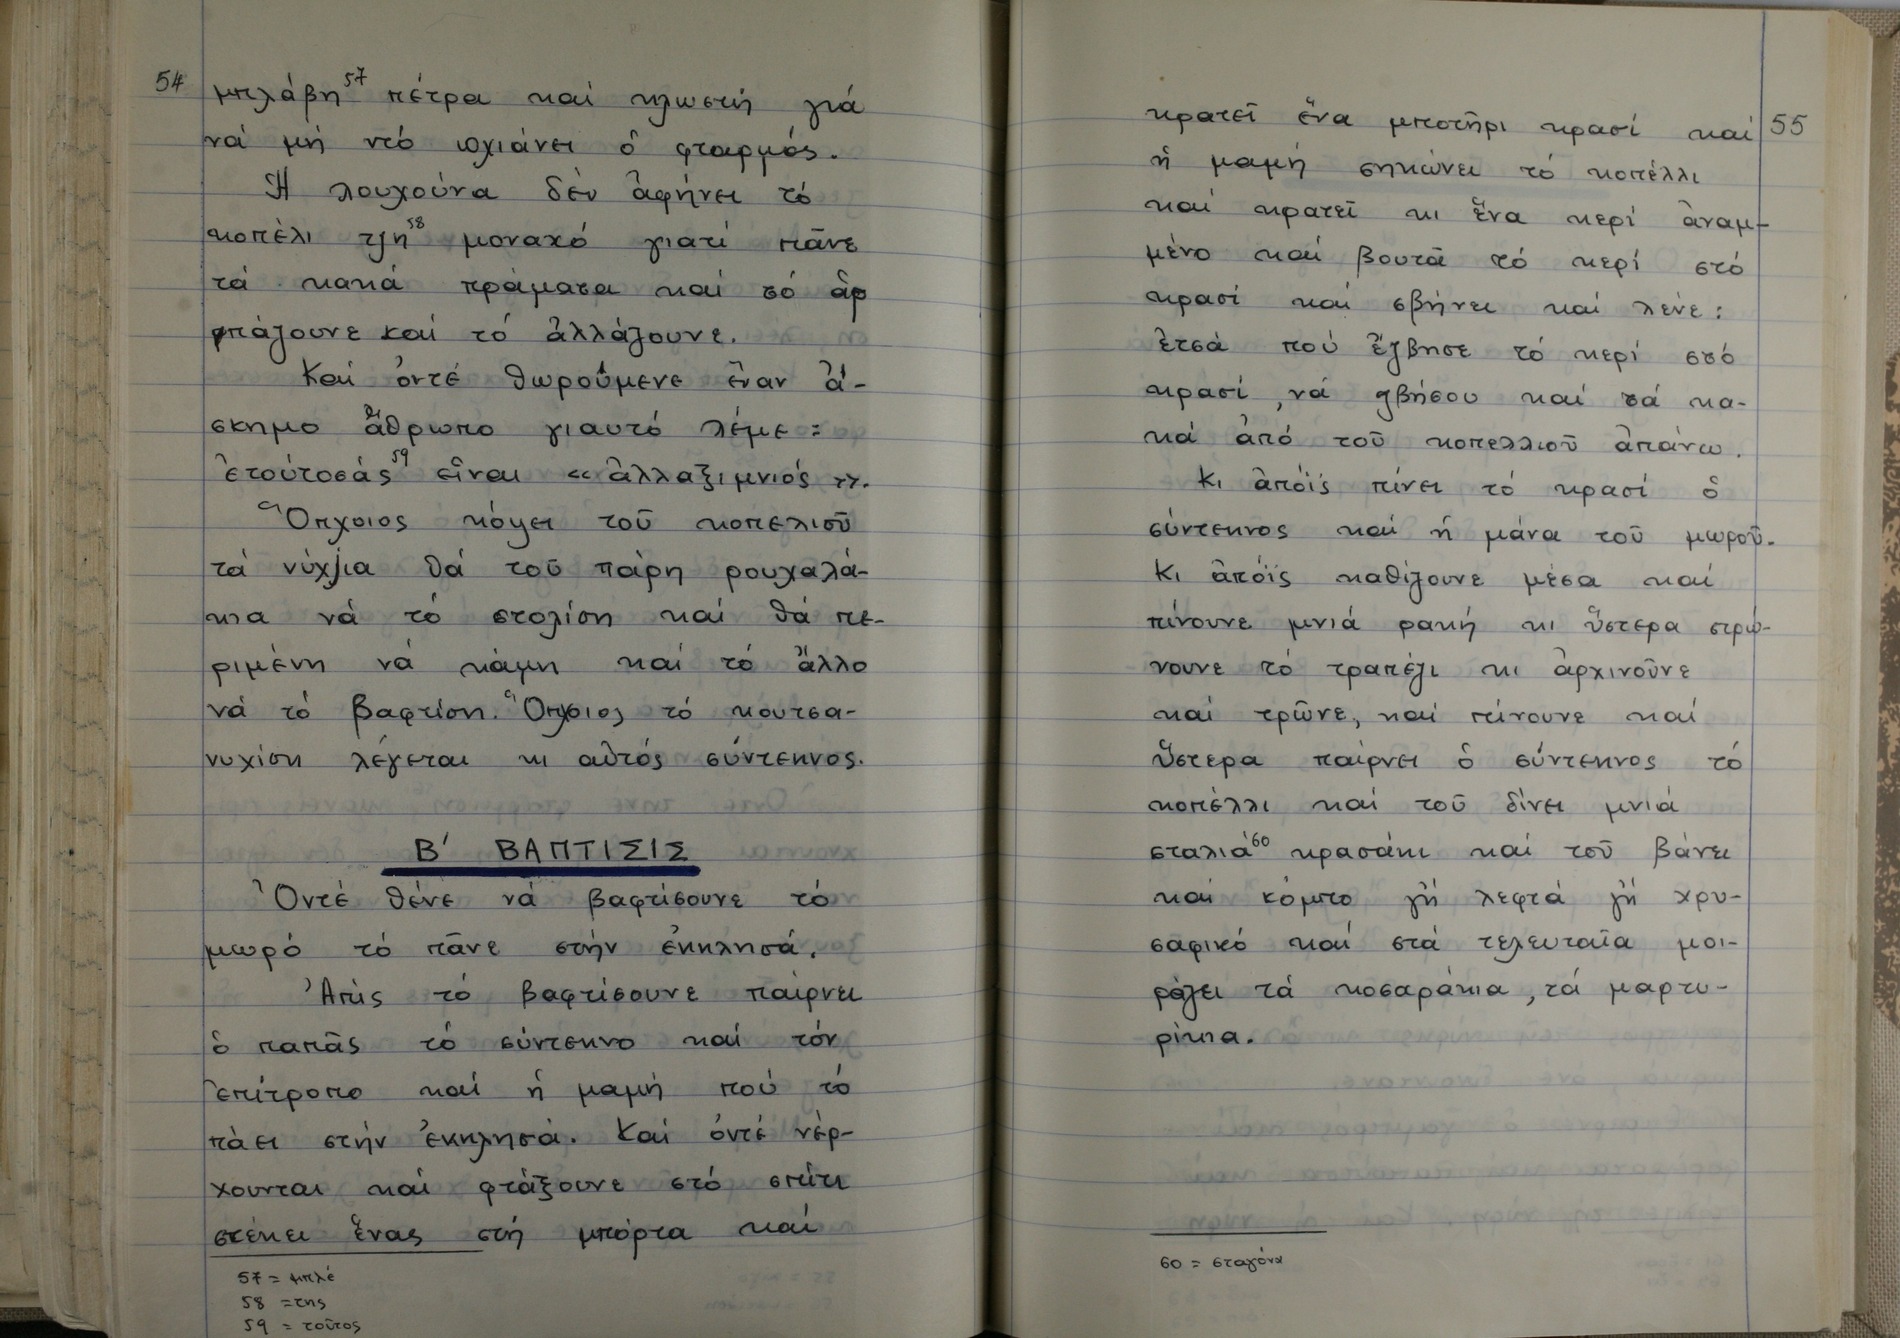 54
μπλάβη⁵⁷ πέτρα καί κλωστή γιά
νά μή ντό πχιάνει ὁ φταρμός.
Ἡ λουχούνα δέν ἀφήνει τό
κοπέλι τζη⁵⁸ μοναχό γιατί πᾶνε
τά κακά πράματα καί τό ἁρ
πάζουνε καί τό ἀλλάζουνε.
Καί ὀντέ θωροῦμενε ἕναν ἄ-
σκημο ἄθρωπο γιαυτό λέμε:
ἐτούτοσάς⁵⁹ εἶναι «ἀλλαξιμνιός».
Ὅπχοιος κόψει τοῦ κοπελιοῦ
τά νύχjια θά τοῦ πάρη ρουχαλά-
κια νά τό στολίση καί θά πε-
ριμένη νά κάμη καί τό ἄλλο
νά τό βαφτίση. Ὅπχοιος τό κουτσα-
νυχίση λέγεται κι αὐτός σύντεκνος.
Β΄ ΒΑΠΤΙΣΙΣ
Ὀντέ θένε νά βαφτίσουνε τό
μωρό τό πᾶνε στήν ἐκκλησά.
Ἀπής τό βαφτίσουνε παίρνει
ὁ παπᾶς τό σύντεκνο καί τόν
ἐπίτροπο καί ἡ μαμή πού τό
πάει στήν ἐκκλησά. Καί ὀντέ νέρ-
χουνται καί φτάξουνε στό σπίτι
στέκει ἕνας στή μπόρτα καί
57 = μπλέ
58 = της
59 = τοῦτος
55
κρατεῖ ἕνα μποτῆρι κρασί καί
ἡ μαμή σηκώνει τό κοπέλλι
καί κρατεῖ κι ἕνα κερί ἀναμ-
μένο καί βουτᾶ τό κερί στό
κρασί καί σβήνει καί λένε:
ἐτσά πού ἔζβησε τό κερί στό
κρασί, νά ζβήσου καί τά κα-
κά ἀπό τοῦ κοπελλιοῦ ἀπάνω.
Κι ἀπόϊς πίνει τό κρασί ὁ
σύντεκνος καί ἡ μάνα τοῦ μωροῦ.
Κι ἀπόϊς καθίζουνε μέσα καί
πίνουνε μνιά ρακή κι ὕστερα στρώ-
νουνε τό τραπέζι κι ἀρχινοῦνε
καί τρῶνε, καί πίνουνε καί
ὕστερα παίρνει ὁ σύντεκνος τό
κοπέλλι καί τοῦ δίνει μνιά
σταλιά⁶⁰ κρασάκι καί τοῦ βάνει
καί κόμπο γή λεφτά γή χρυ-
σαφικό καί στά τελευταῖα μοι-
ράζει τά κοσαράκια, τά μαρτυ-
ρίκια.
60 = σταγόνα